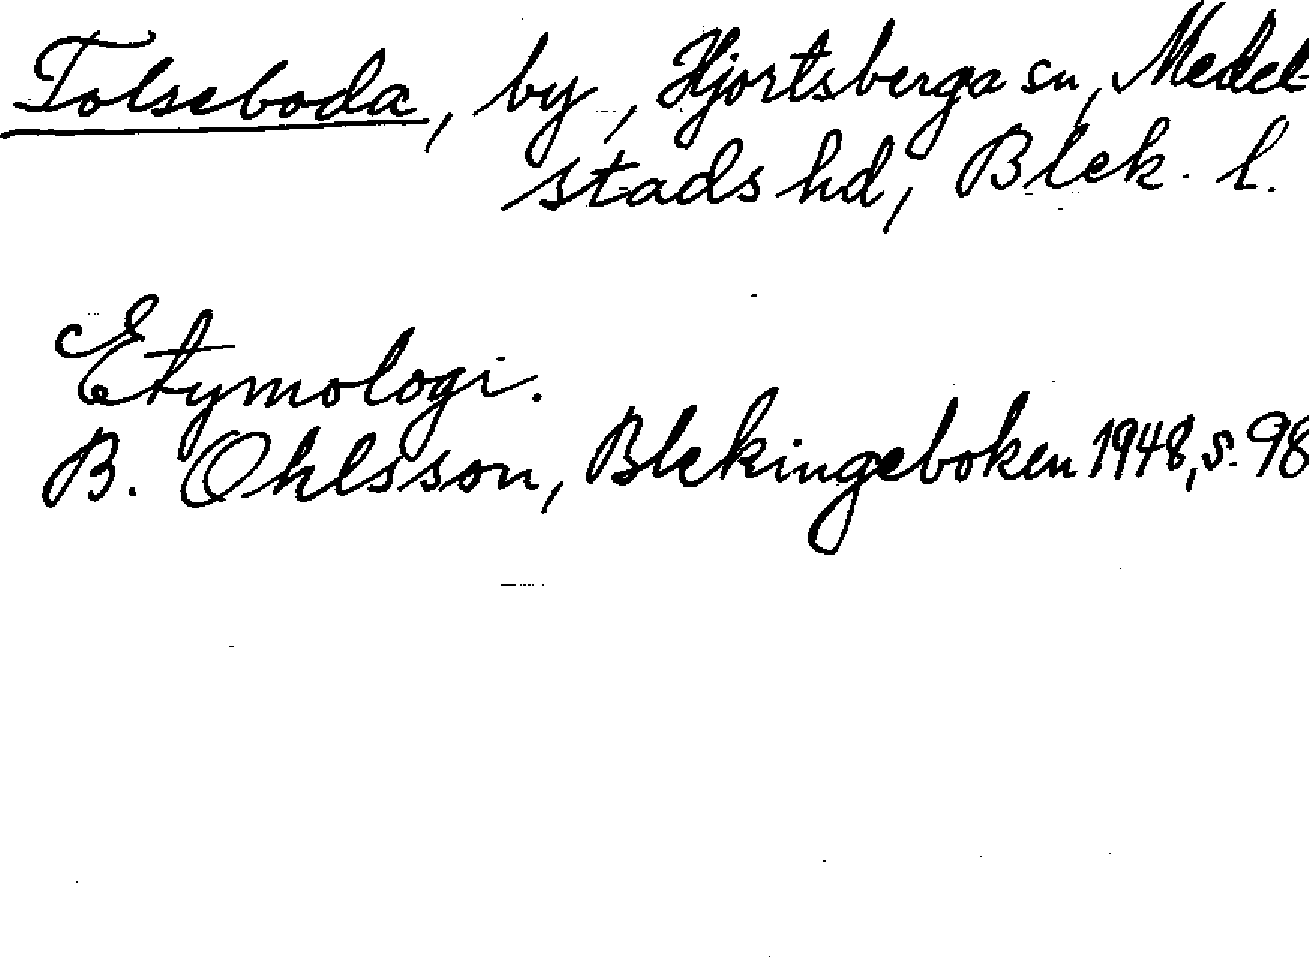 Tolseboda, by, Hjortsberga sn, Medel-
stads hd, Blek. l.
Etymologi.
B. Ohlsson, Blekingeboken 1948, s. 98